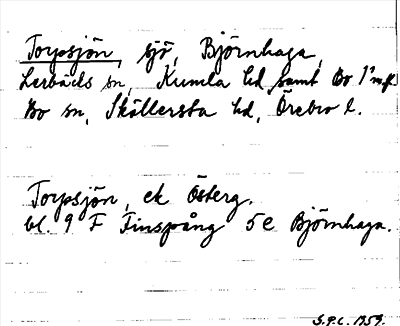 Torpsjön, sjö, Björnhaga,
Lerbäcks sn, Kumla hd samt Bo 1:1 m.fl.
Bo sn, Skyllersta hd, Örebro l.
Torpsjön, ek Österg.
bl. 9 F Finspång 5 e Björnhaga.
S.P.C. 1959.